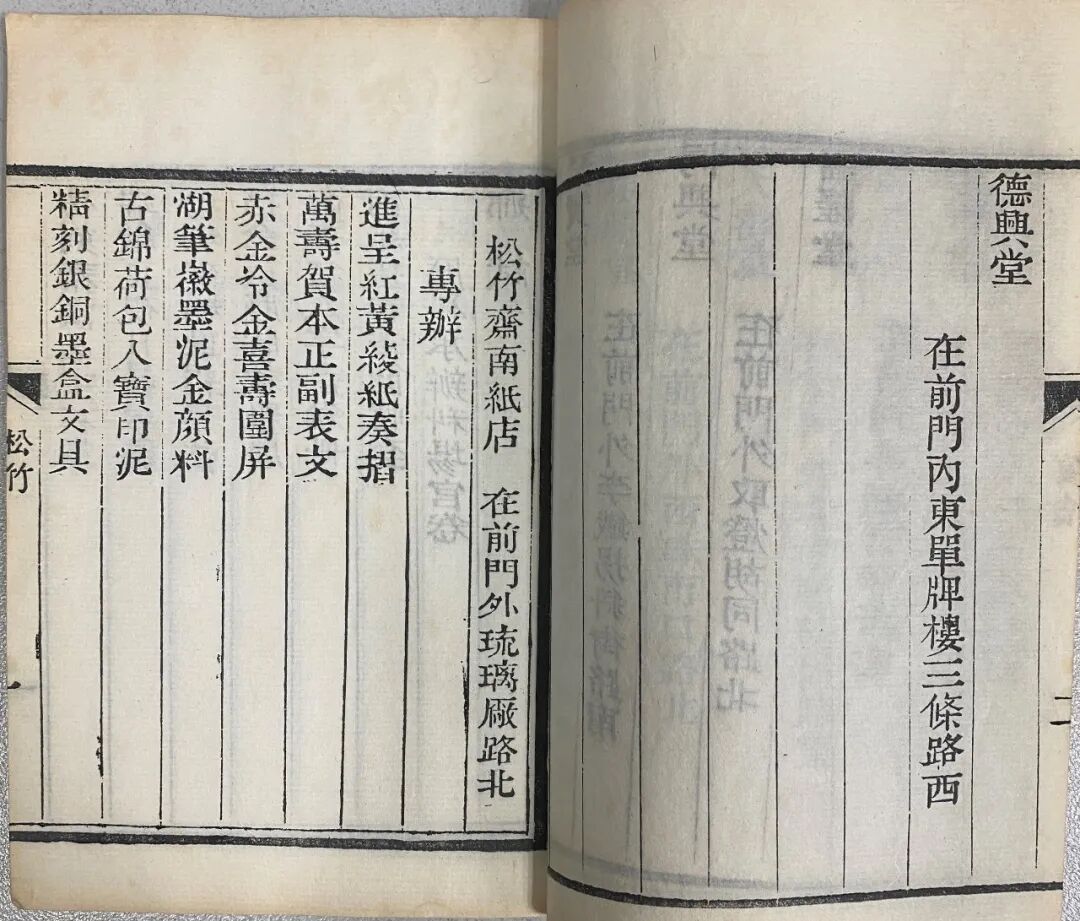 德興堂
在前門內東單牌樓三條路西
二
松竹齋南紙店 在前門外琉璃厰路北
專辦
進呈紅黃綾紙奏摺
萬壽賀本正副表文
赤金冷金喜壽圍屏
湖筆徽墨泥金顏料
古錦荷包八寶印泥
精刻銀銅墨盒文具
松竹
一